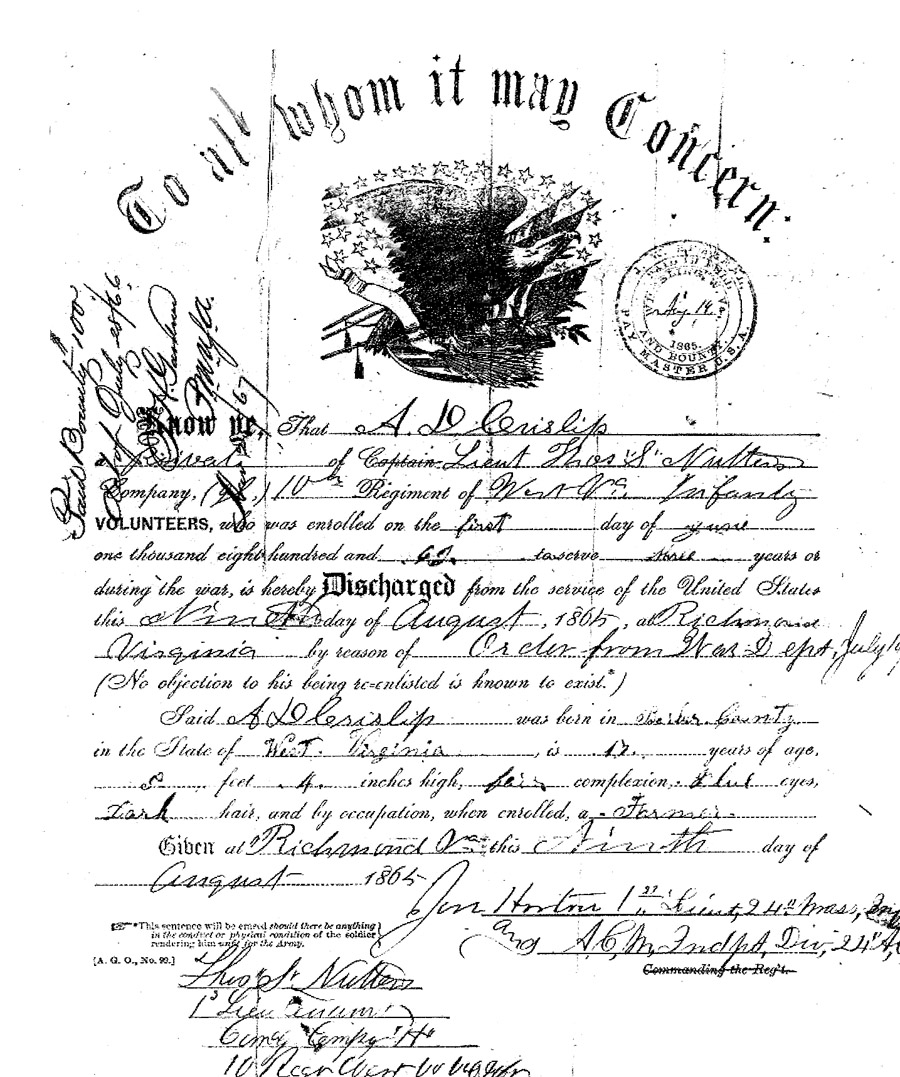 To all whom it may Concern:
PAY MASTER U.S.A.
AND BOUNTY.
Aug 14
1865.
Paid Bounty $100
Know ye, That A. D. Crislip
a Privat of Captain Lieut Thos S Nutter
Company, 10th Regiment of West Va. Infanty
VOLUNTEERS, who was enrolled on the first day of June
one thousand eight hundred and 62 to serve three years or
during the war, is hereby Discharged from the service of the United States
this Ninth day of August, 1865, at Richmond
Virginia by reason of Order from War Dept, July
(No objection to his being re-enlisted is known to exist.*)
Said A D Crislip was born in County
in the State of West. Virginia, is 17. years of age,
5 feet 4 inches high, fair complexion, Blue eyes,
Dark hair, and by occupation, when enrolled, a Farmer.
Given at Richmond Va. this Ninth day of
August 1865
Horton 1st Lieut, 24th Mass,
and A.C.M. Indpt, Div, 24th A.
Commanding the Reg't.
*This sentence will be erased should there be anything
in the conduct or physical condition of the soldier
rendering him unfit for the Army.
[A. G. O., No. 99.]
Thos S. Nutter
1st Lieu
Comdg Compy "H"
10 West